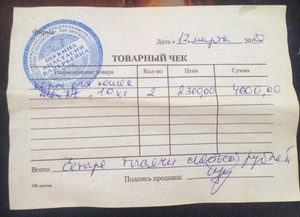 Фирма
Дата « 12 марта 20 22
ТОВАРНЫЙ ЧЕК
Наименование товара Кол-во Цена Сумма
корм для кошек
10 кг 2 2300,00 4600,00
Всего: Четыре тысячи шестьсот рублей
Подпись продавца:
100 листов